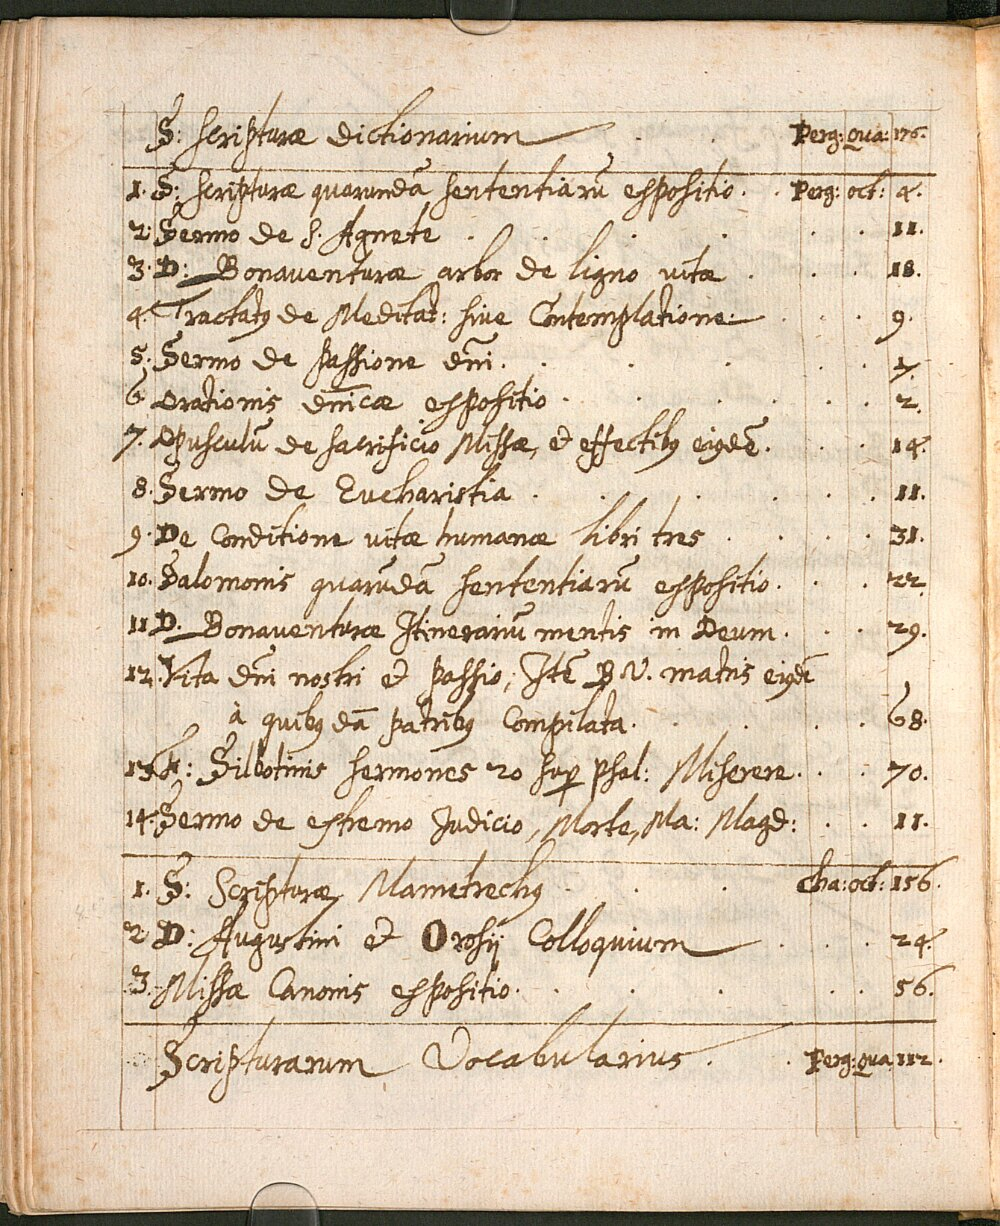 S: Scripturæ dictionarium Perg: qua: 176.
1. S: Scripturæ quorundā sententiarū espositio. Perg: oct: 4.
2. Sermo de S. Agnete 11.
3. D: Bonaventuræ arbor de ligno vitæ 18.
4. Tractatꝰ de Meditat: sive Contemplatione. 9.
5. Sermo de passione dn̄i.
6 Orationis dn̄icæ espositio 2.
7. Opusculū de sacrificio Missæ, et effectibꝰ eiꝰdē. 14.
8. Sermo de Eucharistia 11.
9. De Conditione vitæ humanæ libri tres 31.
10. Salomonis quarūdā sententiarū espositio. 22.
11 D. Bonaventuræ Itinerariū mentis in Deum. 29.
12. Vita dn̄i nostri et passio; Itē B V. matris eiꝰdē
à quibꝰdā patribꝰ Compilata. 68.
13. Silbotinis sermones 20 sup psal: Miserere. 70.
14. Sermo de estremo Judicio, Morte, Ma: Magd: 11.
1. S: Scripturæ Mametrechꝰ cha: oct: 156.
2 D: Augustini et Orosij Colloquium 24.
3. Missæ Canonis espositio. 56.
Scripturarum Vocabularius. Perg: qua 112.